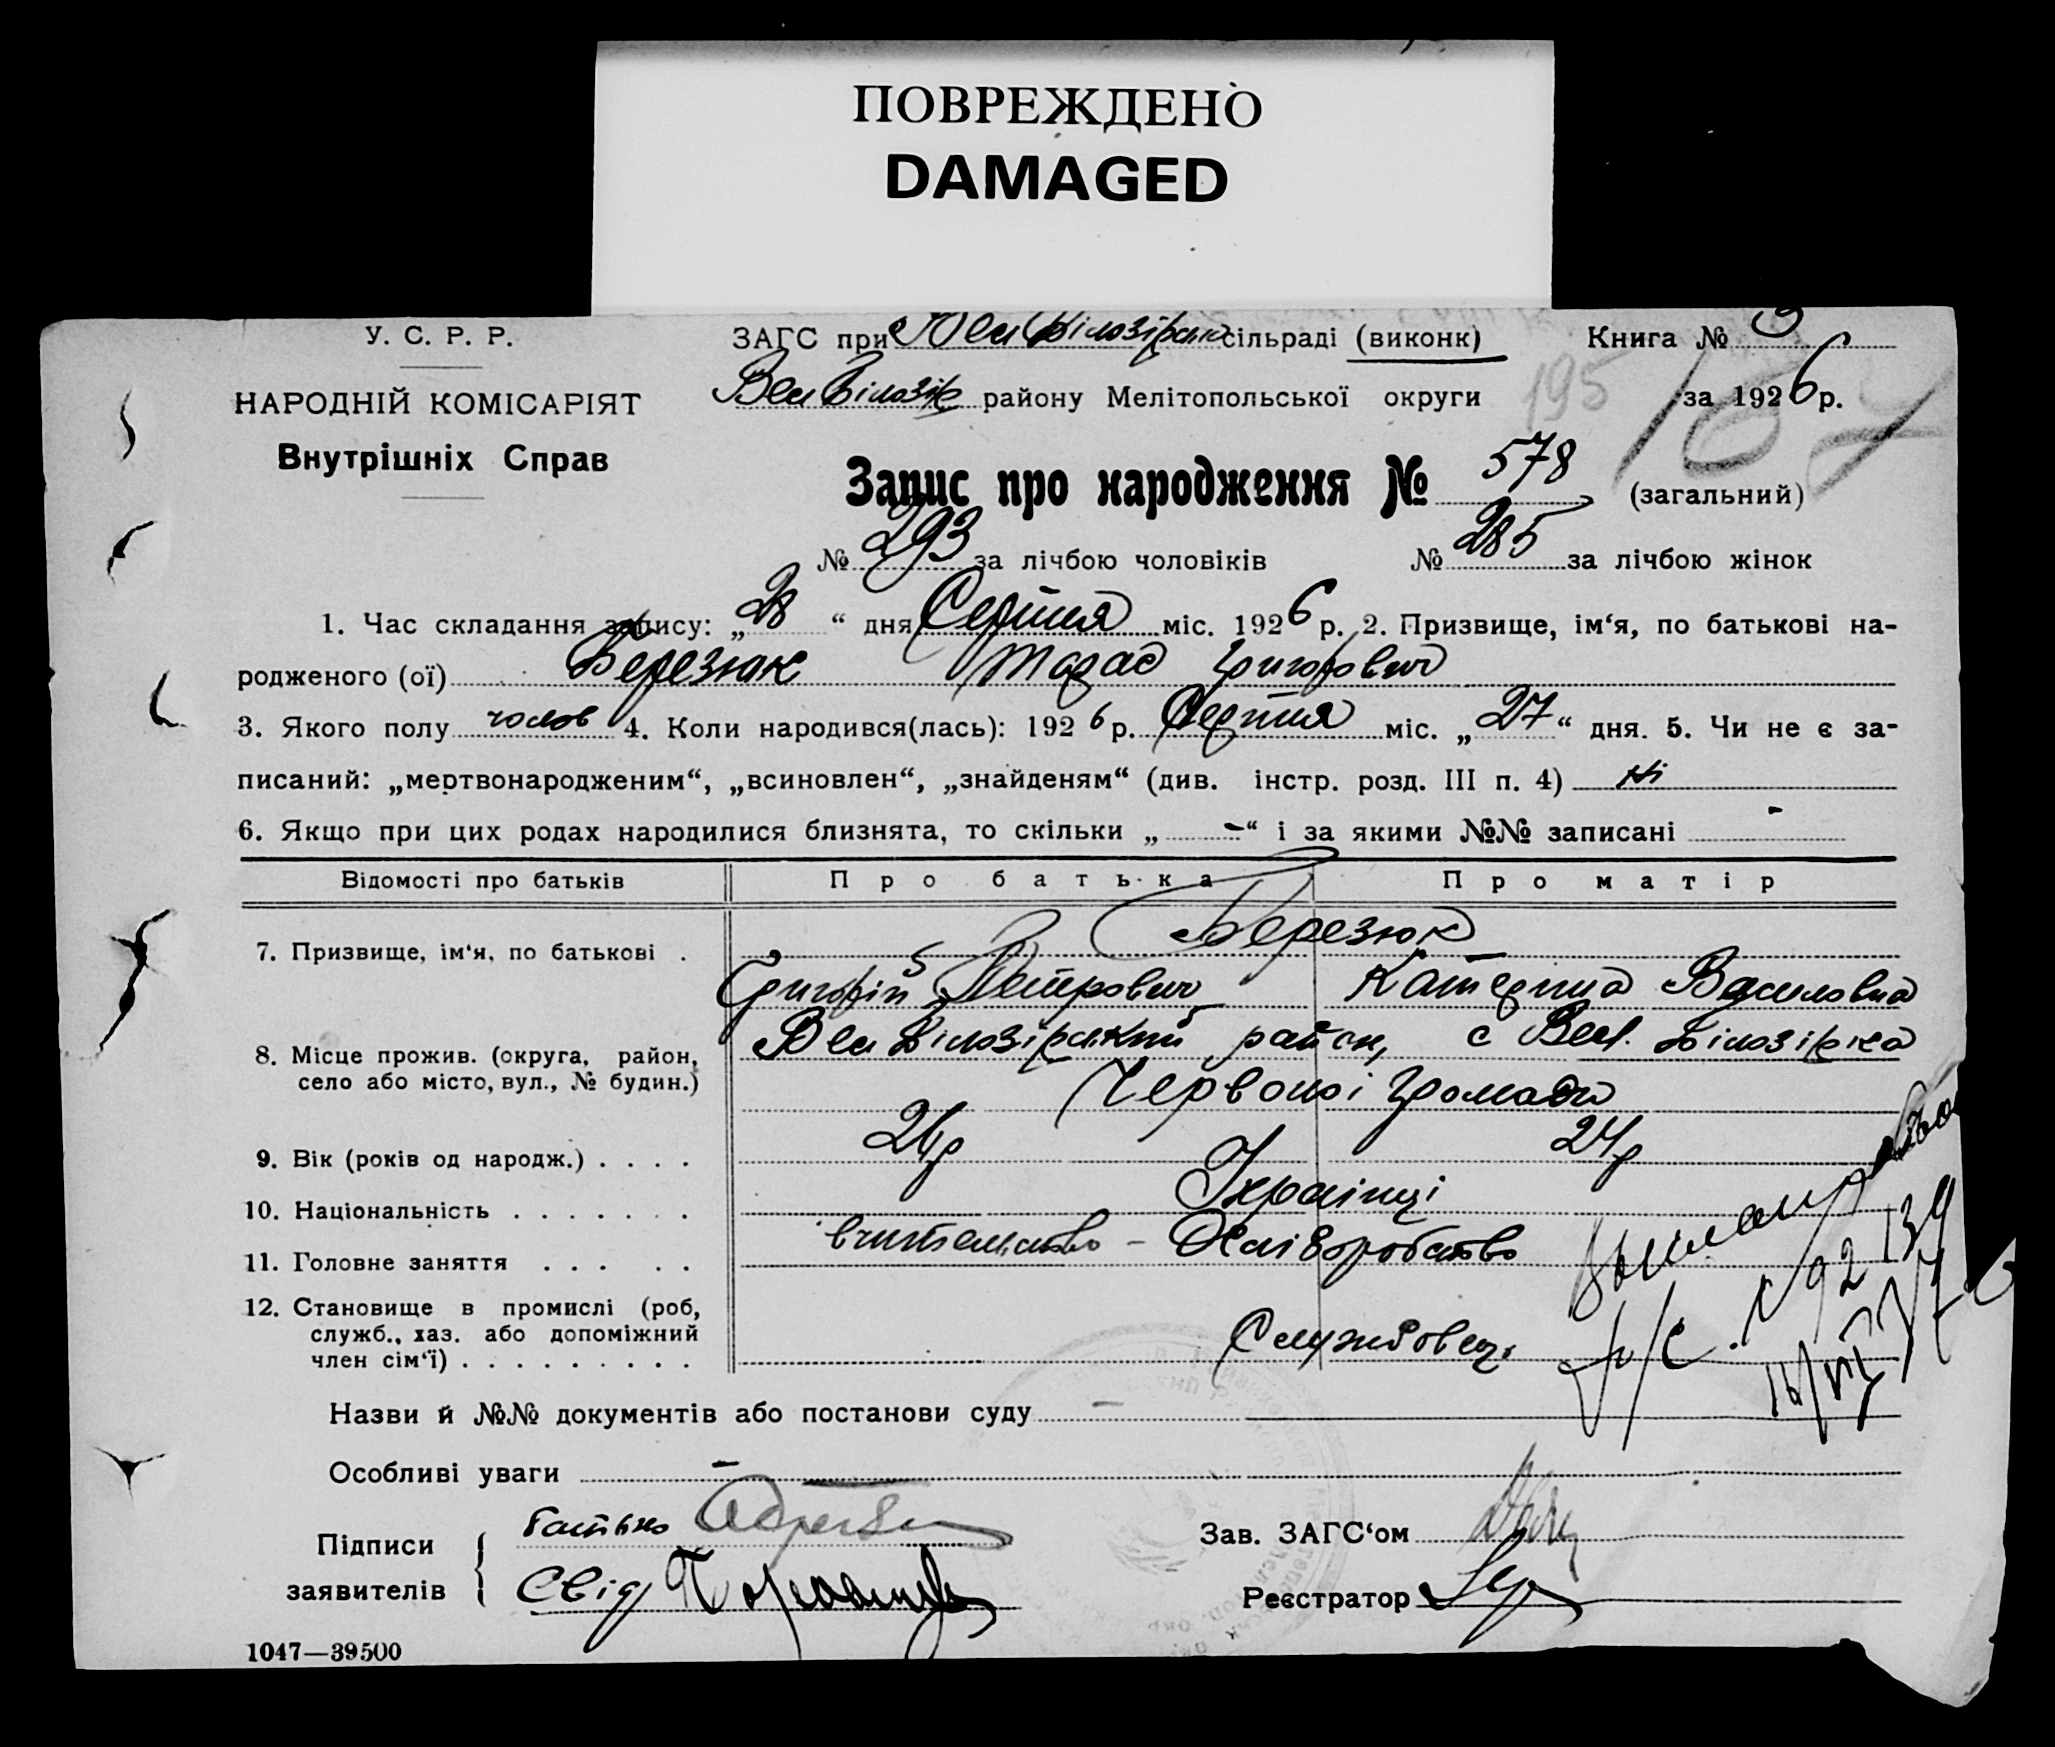 ПОВРЕЖДЕНО
DAMAGED
У. С. Р. Р.
НАРОДНІЙ КОМІСАРІЯТ
Внутрішніх Справ
ЗАГС при Вел Білозірській сільраді (виконк)
Вел Білозір району Мелітопольської округи
Книга № 3
за 1926 р.
195
167
Запис про народження № 578 (загальний)
№ 293 за лічбою чоловіків № 285 за лічбою жінок
1. Час складання запису: „28“ дня Серпня міс. 1926 р. 2. Призвище, ім‘я, по батькові на-
родженого (ої) Березюк Тарас Григорович
3. Якого полу чолов 4. Коли народився(лась): 1926 р. Серпня міс. „27“ дня. 5. Чи не є за-
писаний: „мертвонародженим“, „всиновлен“, „знайденям“ (див. інстр. розд. III п. 4) ні
6. Якщо при цих родах народилися близнята, то скільки „ - “ і за якими №№ записані -
Відомості про батьків Про батька Про матір
7. Призвище, ім‘я, по батькові . Березюк
Григорій Петрович Катерина Василовна
8. Місце прожив. (округа, район, село або місто, вул., № будин.) Вел Білозірський район, с Вел. Білозірка
Червоної Громади
9. Вік (років од народж.) . . . . 24р 24р
10. Національність . . . . . . . Українці
11. Головне заняття . . . . . вчительство - Хліборобство
12. Становище в промислі (роб,
служб., хаз. або допоміжний
член сім‘ї) . . . . . . . . . Службовец.
Назви й №№ документів або постанови суду -
Особливі уваги -
Підписи
заявителів
батько
Свід
Зав. ЗАГС‘ом
Реєстратор
1047—39500